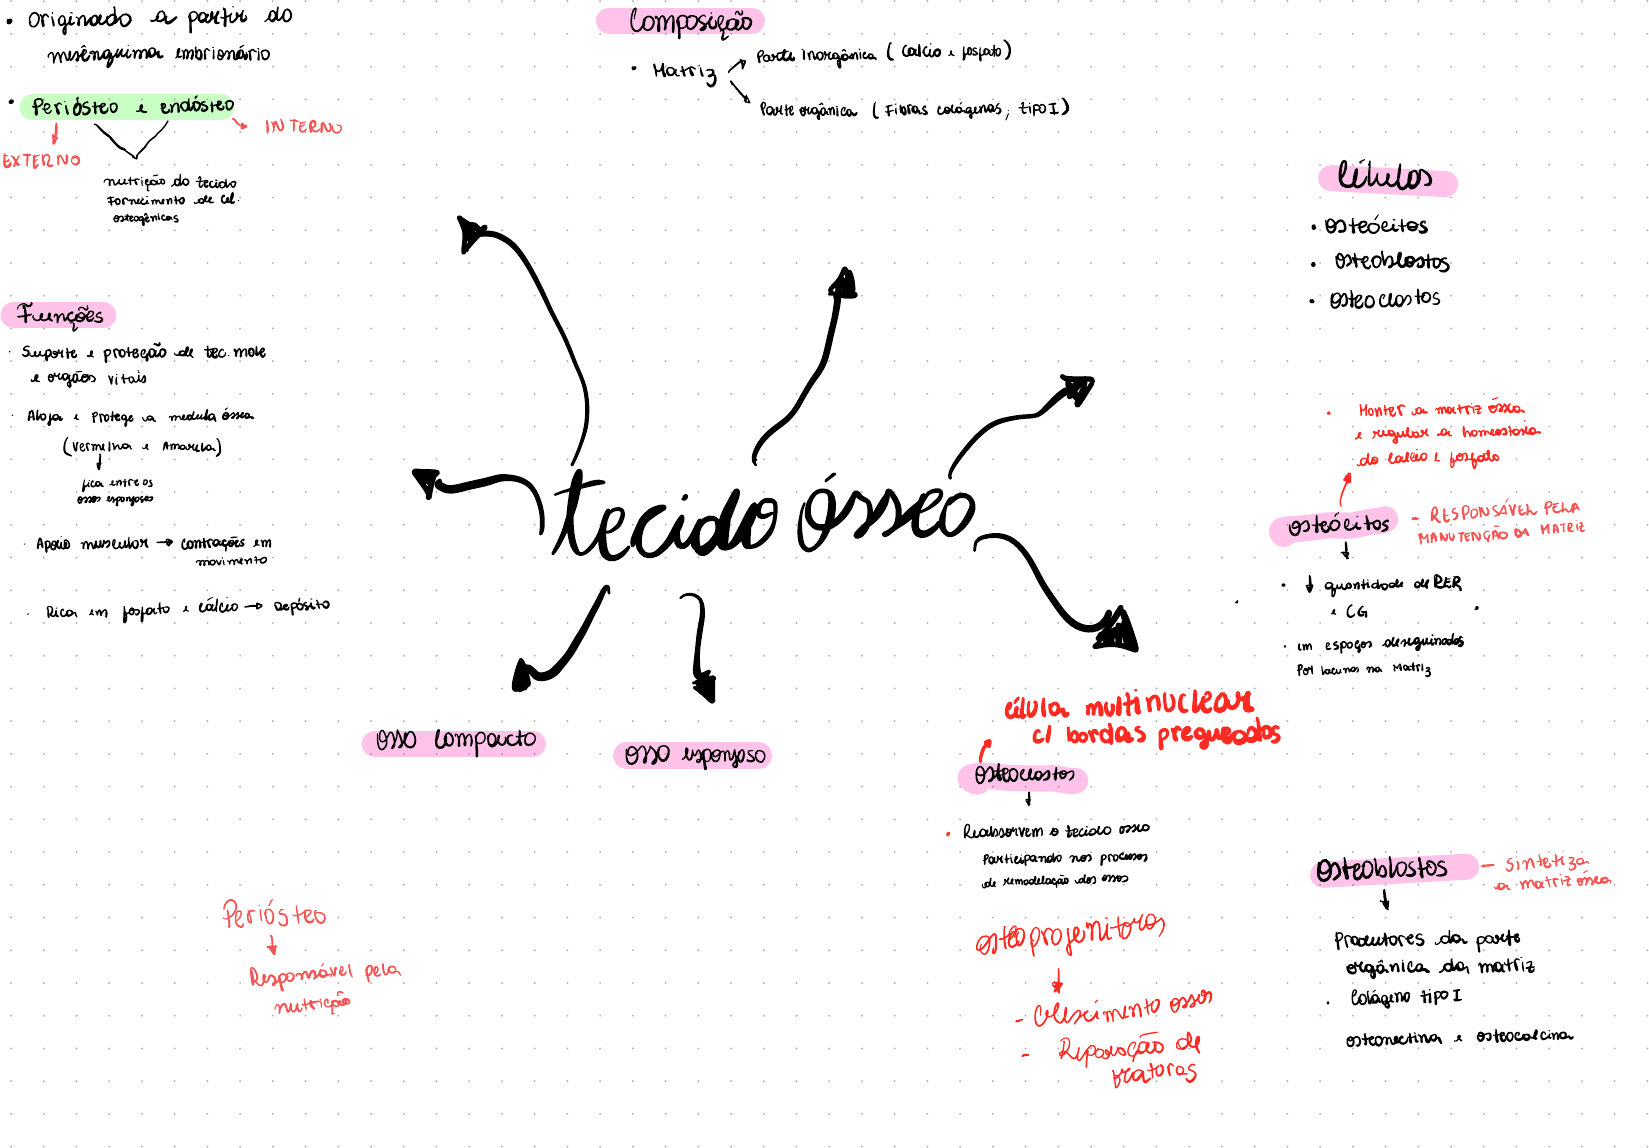 • Originado a partir do
mesênquima embrionário
• Periósteo e endósteo
INTERNO
EXTERNO
nutrição do tecido
Fornecimento de cel.
osteogênicas
Composição
• Matriz
Parte inorgânica (Calcio e fosfato)
Parte orgânica (Fibras colágenas, tipo I)
Células
• Osteócitos
• Osteoblastos
• Osteoclastos
Funções
· Suporte e proteção de tec. mole
e orgãos vitais
· Aloja e Protege a medula óssea
(Vermelha e Amarela)
fica entre os
ossos esponjosos
· Apoio muscular → contrações em
movimento
· Rica em fosfato e cálcio → Depósito
tecido ósseo
• Manter a matriz óssea
e regular a homeostasia
do calcio e fosfato
Osteócitos
- RESPONSÁVEL PELA
MANUTENÇÃO DA MATRIZ
• ↓ quantidade de RER
e CG
· em espaços desequinados
Por lacunas na Matriz
Osso Compacto
Osso esponjoso
célula multinuclear
c/ bordas pregueados
Osteoclastos
• Reabsorvem o tecido osseo
Participando nos processos
de remodelação dos ossos
Osteoprogenitoras
- Crescimento ossos
- Reparação de
fraturas
Osteoblastos
- Sintetiza
a matriz óssea
Produtores da parte
orgânica da matriz
· Colágeno tipo I
osteonectina e osteocalcina
Periósteo
Responsável pela
nutrição